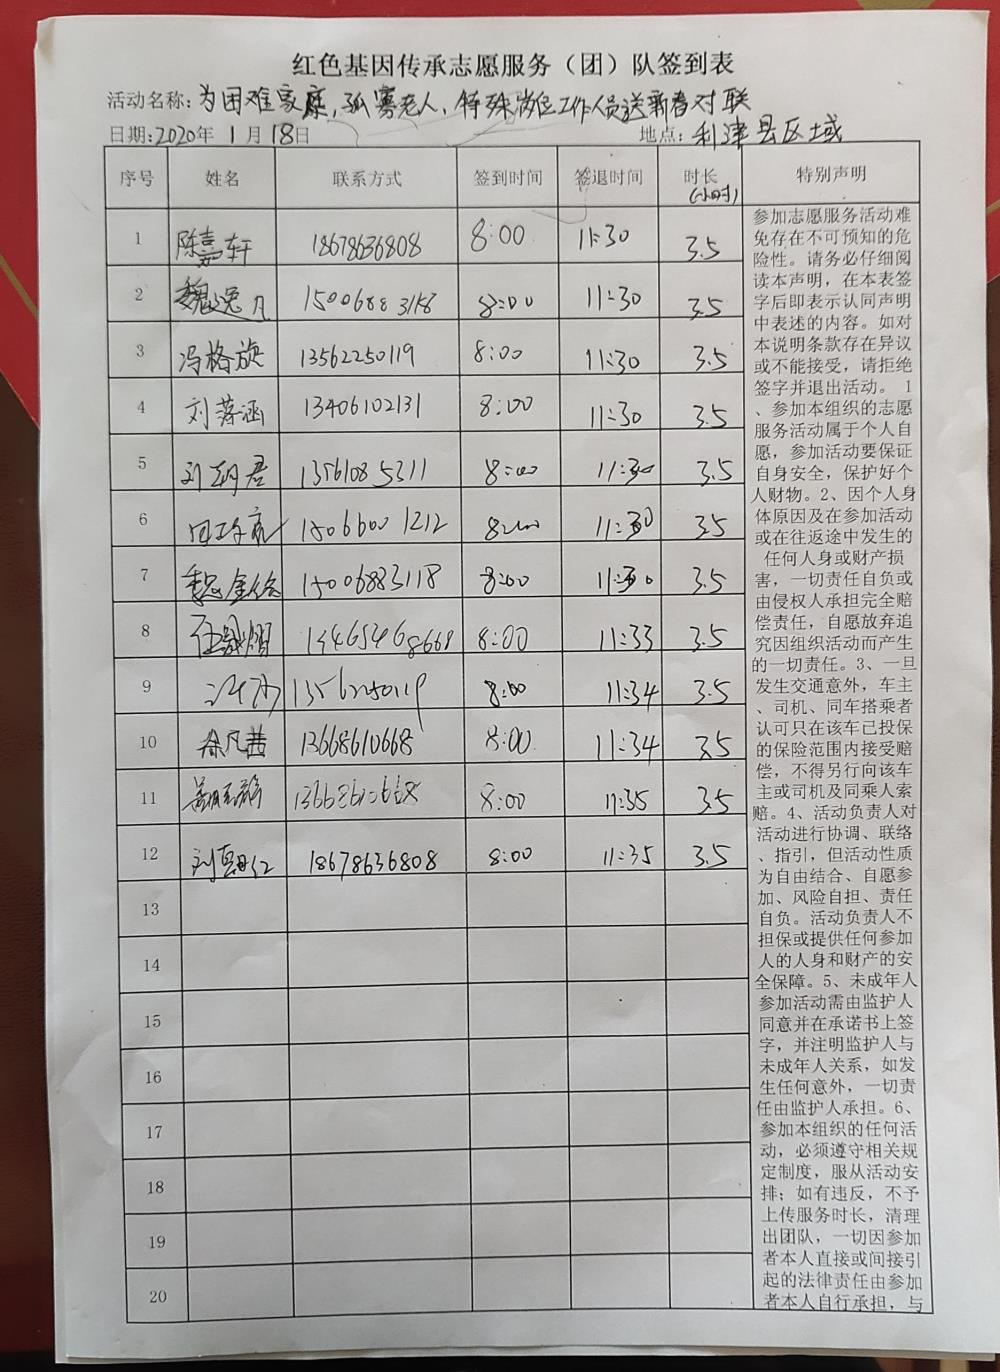 红色基因传承志愿服务（团）队签到表
活动名称:为困难家庭,孤寡老人、特殊岗位工作人员送新春对联
日期:2020年 1月 18日 地点:利津县区域
序号 姓名 联系方式 签到时间 签退时间 时长(小时) 特别声明
1 陈嘉轩 18678636808 8:00 11:30 3.5
2 魏逸凡 15006883118 8:00 11:30 3.5
3 冯格旋 13562250119 8:00 11:30 3.5
4 刘落涵 13406102131 8:00 11:30 3.5
5 13561085311 8:00 11:30 3.5
6 15066001212 8:00 11:30 3.5
7 15006883118 8:00 11:30 3.5
8 13465468668 8:00 11:33 3.5
9 13562250119 8:00 11:34 3.5
10 13668610668 8:00 11:34 3.5
11 8:00 11:35 3.5
12 18678636808 8:00 11:35 3.5
13
14
15
16
17
18
19
20
参加志愿服务活动难
免存在不可预知的危
险性。请务必仔细阅
读本声明，在本表签
字后即表示认同声明
中表述的内容。如对
本说明条款存在异议
或不能接受，请拒绝
签字并退出活动。 1
、参加本组织的志愿
服务活动属于个人自
愿，参加活动要保证
自身安全，保护好个
人财物。2、因个人身
体原因及在参加活动
或在往返途中发生的
任何人身或财产损
害，一切责任自负或
由侵权人承担完全赔
偿责任，自愿放弃追
究因组织活动而产生
的一切责任。3、一旦
发生交通意外，车主
、司机、同车搭乘者
认可只在该车已投保
的保险范围内接受赔
偿，不得另行向该车
主或司机及同乘人索
赔。4、活动负责人对
活动进行协调、联络
、指引，但活动性质
为自由结合、自愿参
加、风险自担、责任
自负。活动负责人不
担保或提供任何参加
人的人身和财产的安
全保障。5、未成年人
参加活动需由监护人
同意并在承诺书上签
字，并注明监护人与
未成年人关系，如发
生任何意外，一切责
任由监护人承担。6、
参加本组织的任何活
动，必须遵守相关规
定制度，服从活动安
排；如有违反，不予
上传服务时长，清理
出团队，一切因参加
者本人直接或间接引
起的法律责任由参加
者本人自行承担，与